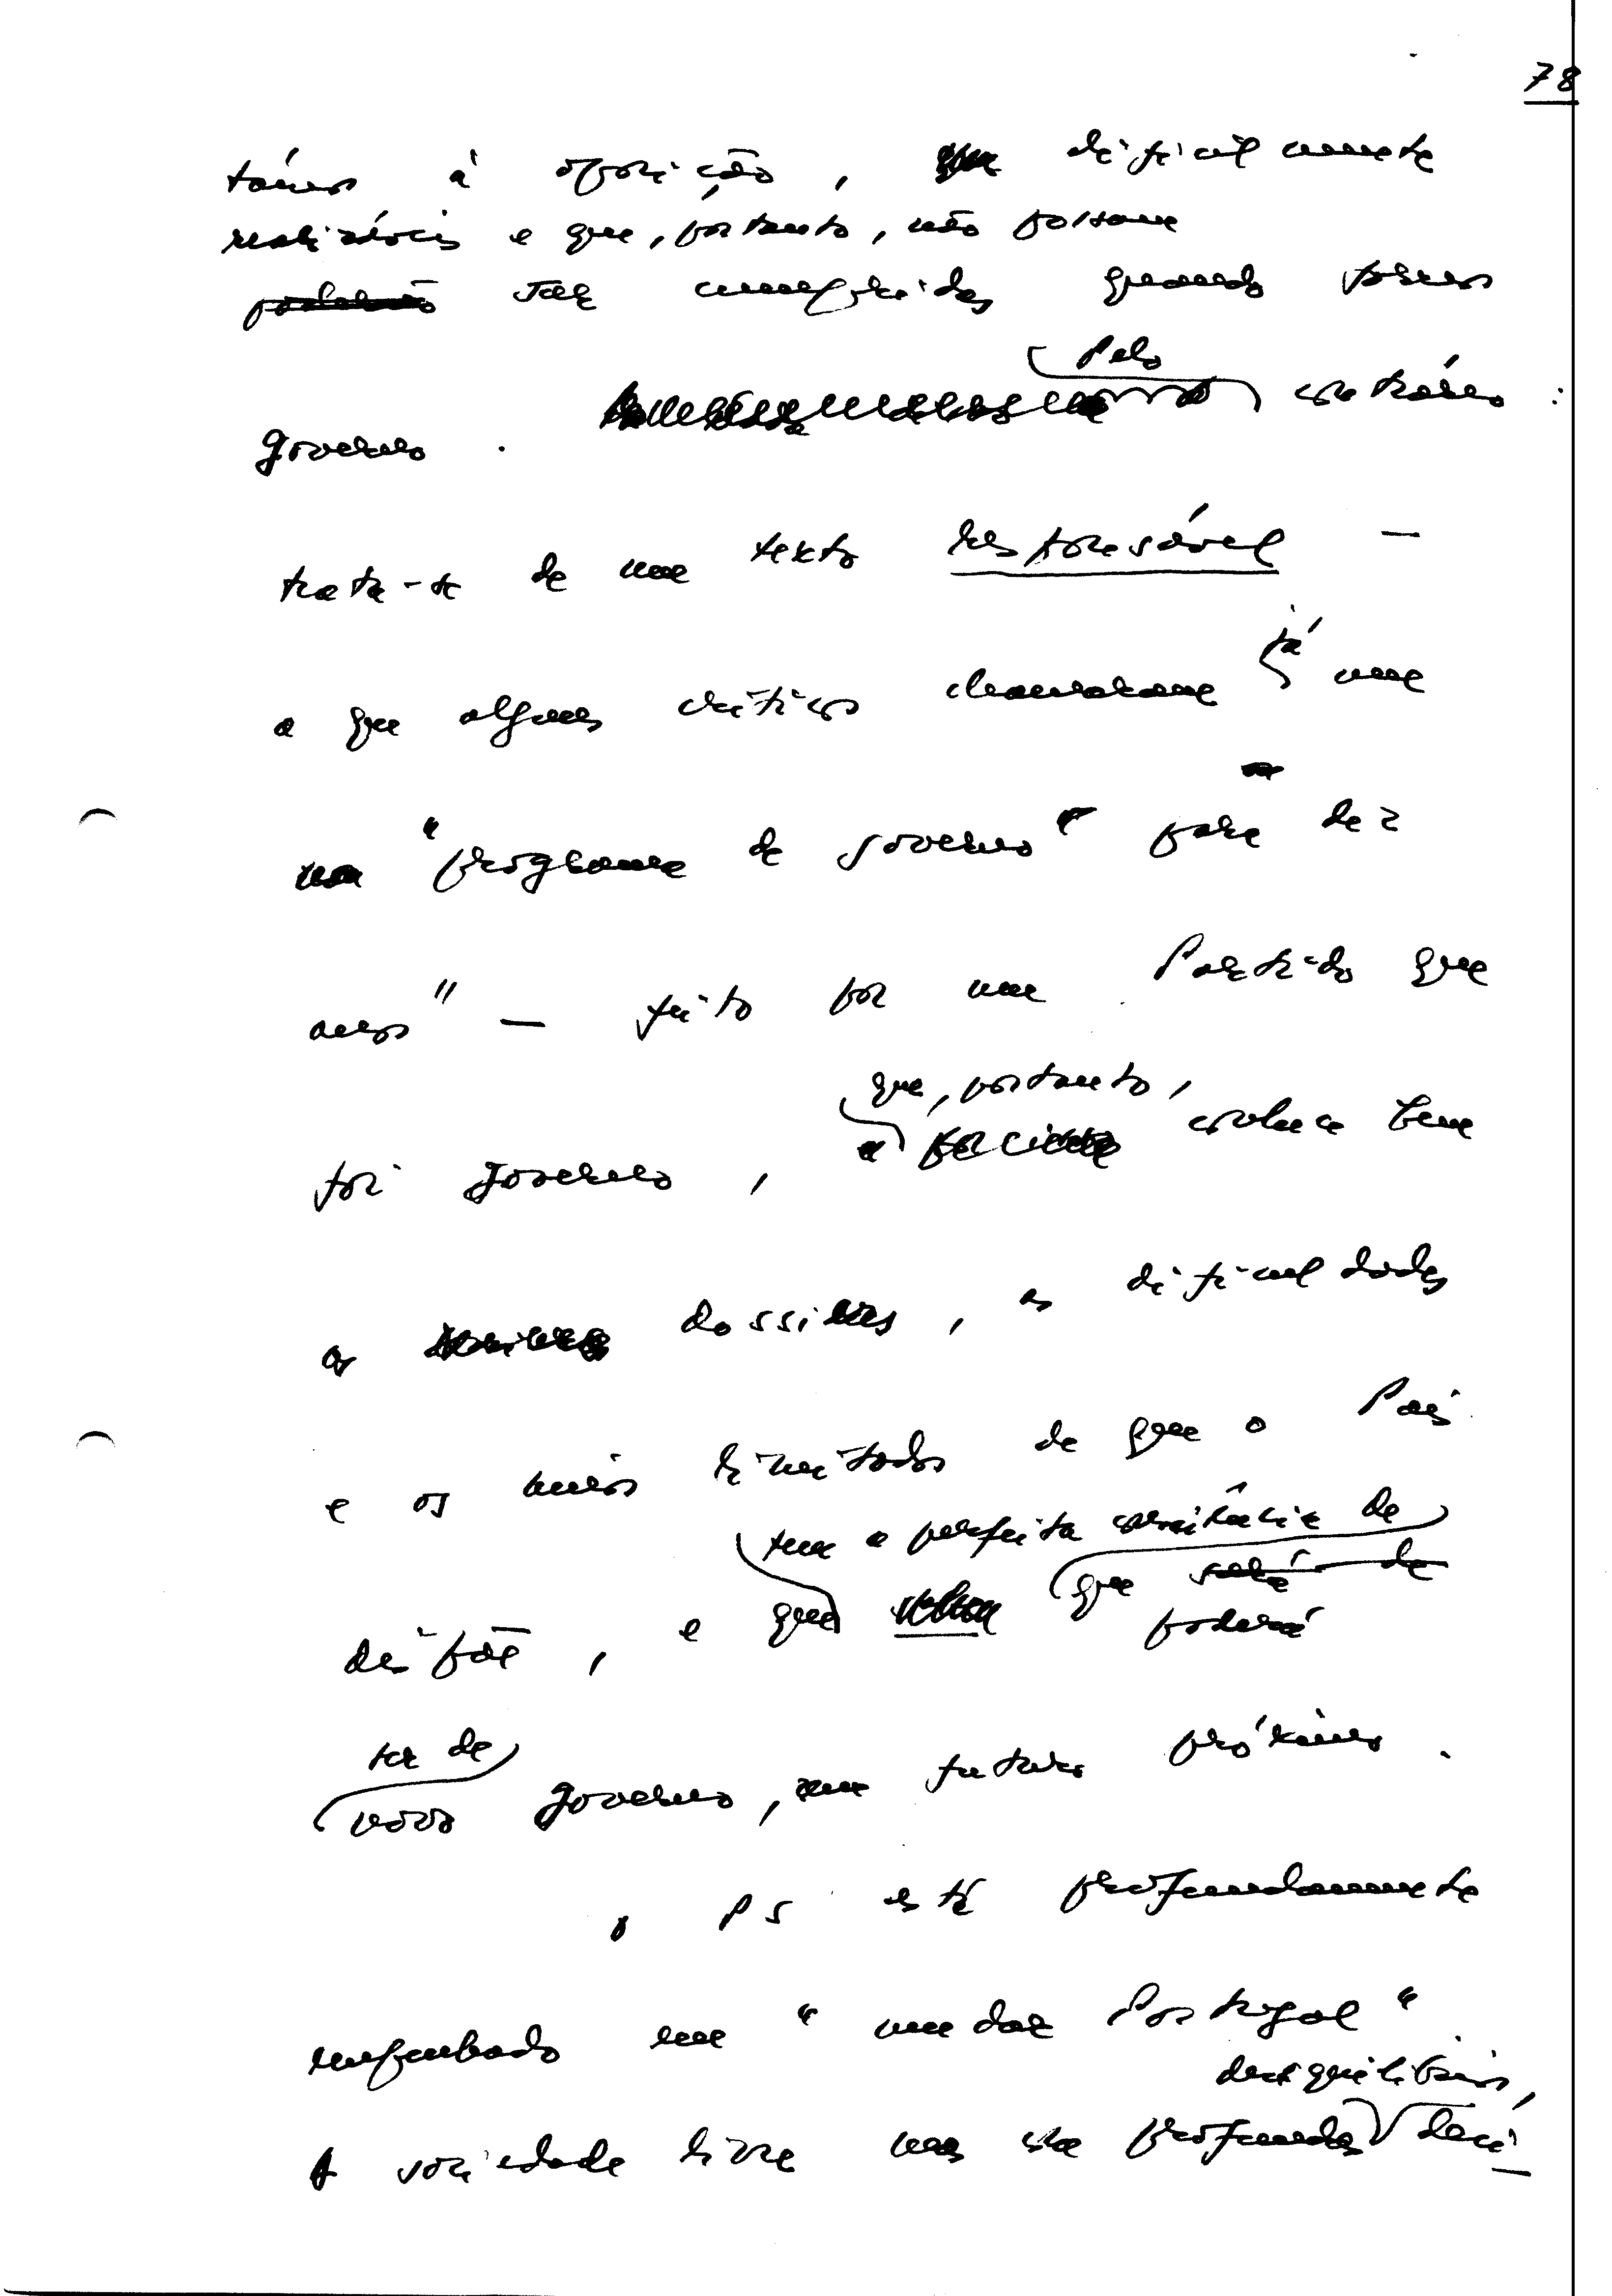 78
támos à oposição, dificilmente
realizáveis e que, portanto, não possam
ser cumpridas quando formos
Pelo
governo. contrário:
trata-se de um texto responsável —
já
a que alguns críticos chamaram um
"programa de governo" para dez
anos" — feito por um Partido que
que, portanto,
foi governo, conhece bem
os dossiers, as dificuldades
e os meios limitados de que o País
tem a perfeita consciência de
dispõe, e que que será de
poderá
ser de
novo governo, num futuro próximo.
O PS está profundamente
empenhado em "mudar Portugal"
desequilíbrios,
A sociedade livre mas com profundos